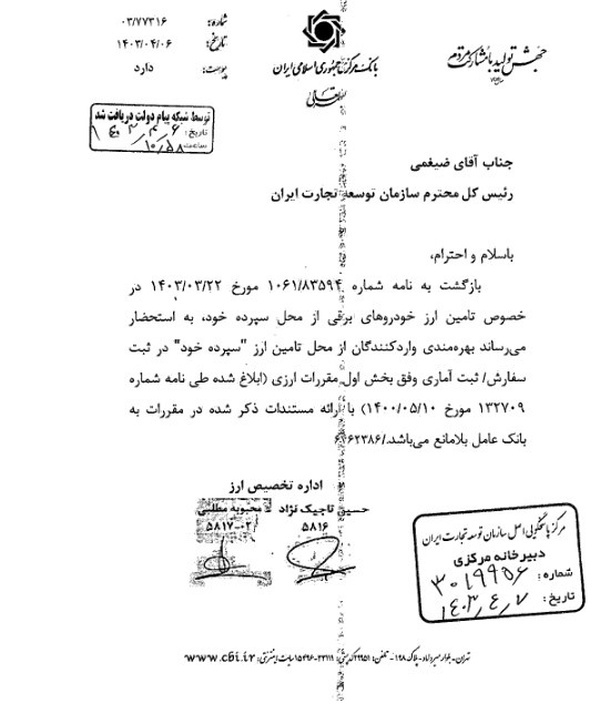 شماره: ۰۳/۷۷۳۱۶
تاریخ: ۱۴۰۳/۰۴/۰۶
پیوست: دارد
بانک مرکزی جمهوری اسلامی ایران
بسمه تعالی
جهش تولید با مشارکت مردم
توسط شبکه پیام دولت دریافت شد
تاریخ: ۱۴۰۳/۴/۶
ساعت ۱۰/۵۸
جناب آقای ضیغمی
رئیس کل محترم سازمان توسعه تجارت ایران
باسلام و احترام،
بازگشت به نامه شماره ۱۰۶۱/۸۳۵۹۴ مورخ ۱۴۰۳/۰۳/۲۲ در
خصوص تامین ارز خودروهای برقی از محل سپرده خود، به استحضار
می‌رساند بهره‌مندی واردکنندگان از محل تامین ارز "سپرده خود" در ثبت
سفارش/ ثبت آماری وفق بخش اول مقررات ارزی (ابلاغ شده طی نامه شماره
۱۳۲۷۰۹ مورخ ۱۴۰۰/۰۵/۱۰) با ارائه مستندات ذکر شده در مقررات به
بانک عامل بلامانع می‌باشد./۶۳۶۲۳۸۶
اداره تخصیص ارز
حسین تاجیک نژاد محبوبه مطلبی
۵۸۱۶ ۵۸۱۷-۰۲
مرکز پاسخگویی اصل سازمان توسعه تجارت ایران
دبیرخانه مرکزی
شماره: ۳۰۱۹۹۵۶
تاریخ: ۱۴۰۳/۴/۷
تهران - بلوار میرداماد - پلاک ۱۹۸ - تلفن: ۲۹۹۵۱ کدپستی: ۱۵۴۹۶-۳۳۱۱۱ سایت اینترنتی: www.cbi.ir